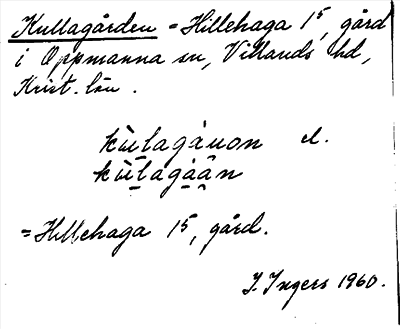 Kullagården = Hillehaga 1⁵, gård
i Oppmanna sn, Villands hd,
Krist. län.
el.
= Hillehaga 1⁵, gård.
I. Ingers 1960.